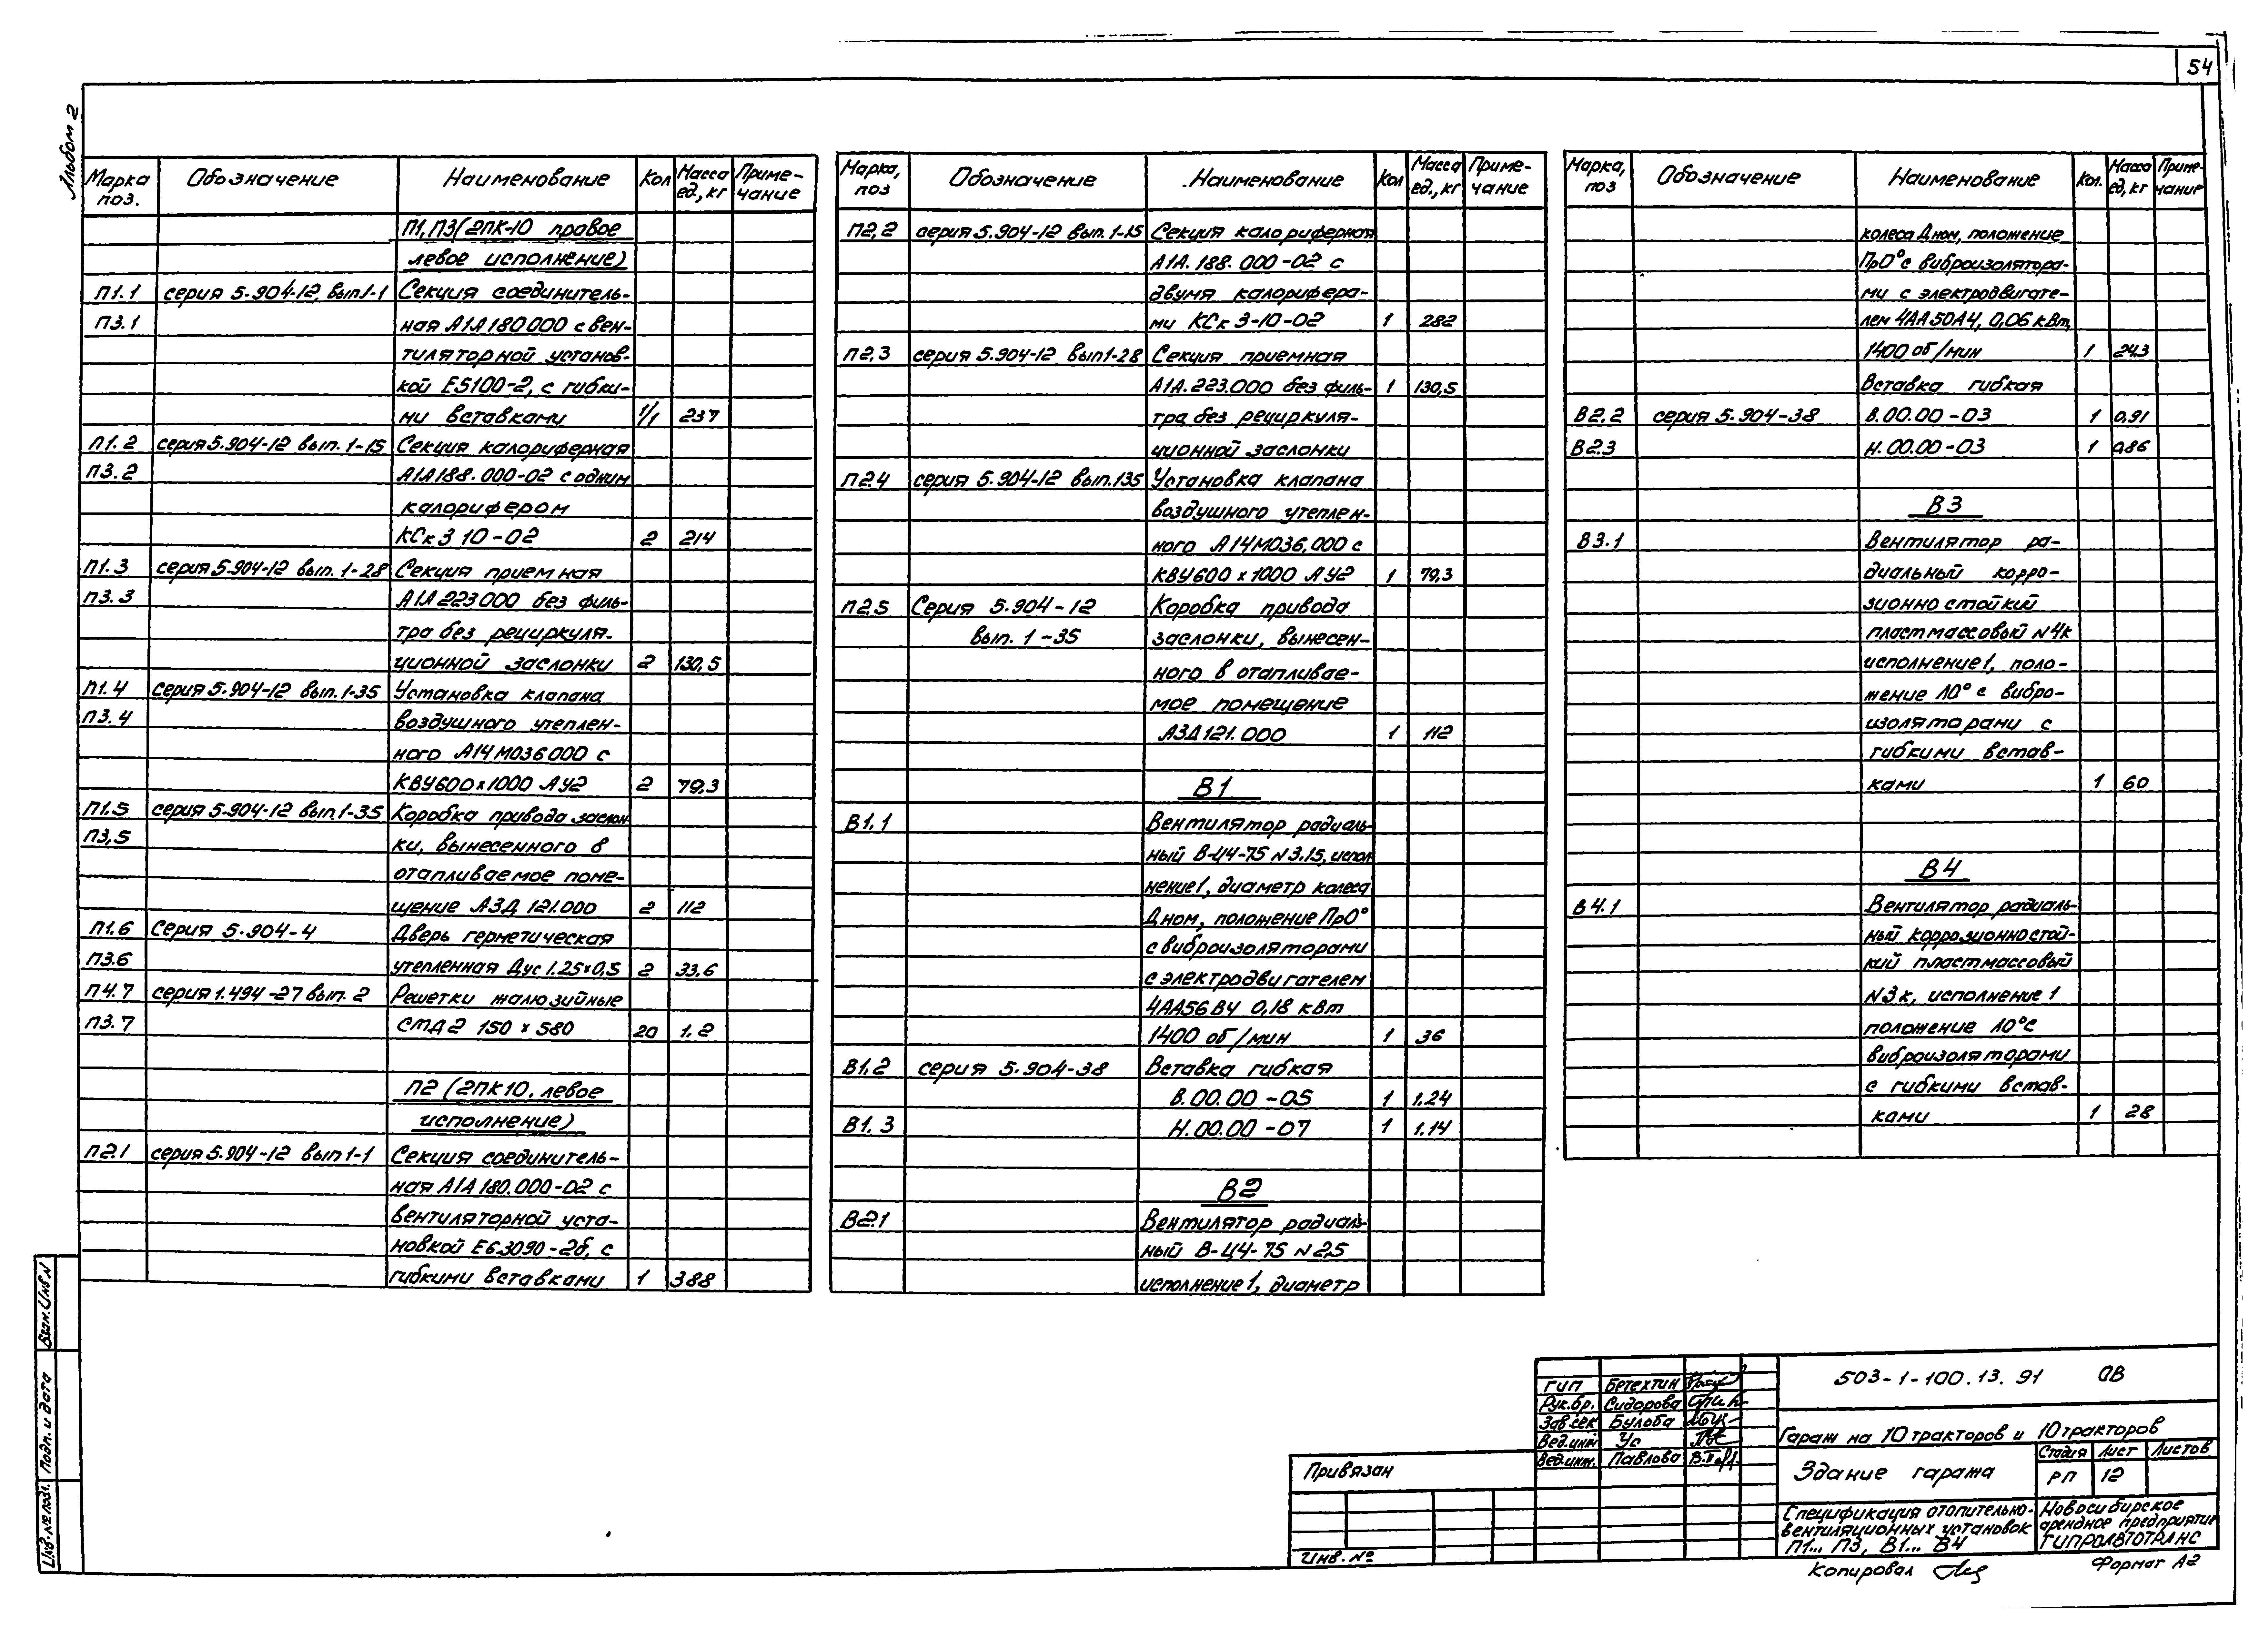 54
Альбом 2
Марка поз. Обозначение Наименование Кол Масса ед., кг Примечание
П1, П3 (2ПК-10 правое
левое исполнение)
П1.1 серия 5.904-12, вып.1-1 Секция соединитель-
П3.1 ная А1А180000 с вен-
тиляторной установ-
кой Е5100-2, с гибки-
ми вставками 1/1 237
П1.2 серия 5.904-12 вып. 1-15 Секция калориферная
П3.2 А1А188.000-02 с одним
калорифером
КСк3 10-02 2 214
П1.3 серия 5.904-12 вып. 1-28 Секция приемная
П3.3 А1А223000 без филь-
тра без рециркуля-
ционной заслонки 2 130,5
П1.4 серия 5.904-12 вып. 1-35 Установка клапана
П3.4 воздушного утеплен-
ного А14М036000 с
КВУ600х1000 АУ2 2 79,3
П1.5 серия 5.904-12 вып.1-35 Коробка привода заслон
П3,5 ки, вынесенного в
отапливаемое поме-
щение АЗД 121.000 2 112
П1.6 Серия 5.904-4 Дверь герметическая
П3.6 утепленная Дус 1.25х0,5 2 33.6
П4.7 серия 1.494-27 вып. 2 Решетки жалюзийные
П3.7 СМД2 150 х 580 20 1.2
П2 (2ПК10, левое
исполнение)
П2.1 серия 5.904-12 вып 1-1 Секция соединитель-
ная А1А 180.000-02 с
вентиляторной уста-
новкой Е6.3090-2б, с
гибкими вставками 1 388
Марка, поз Обозначение Наименование Кол Масса ед., кг Примечание
П2,2 серия 5.904-12 вып. 1-15 Секция калориферная
А1А. 188. 000-02 с
двумя калорифера-
ми КСк 3-10-02 1 282
П2,3 серия 5.904-12 вып1-28 Секция приемная
А1А.223.000 без филь- 1 130,5
тра без рециркуля-
ционной заслонки
П2.4 серия 5.904-12 вып.135 Установка клапана
воздушного утеплен-
ного А14М036,000 с
КВУ600 х 1000 АУ2 1 79,3
П2,5 Серия 5.904-12 Коробка привода
вып. 1-35 заслонки, вынесен-
ного в отапливае-
мое помещение
АЗД121.000 1 112
В1
В1.1 Вентилятор радиаль-
ный В-Ц4-75 N3.15, испол
нение1, диаметр колеса
Дном, положение Пр0°
с виброизоляторами
с электродвигателем
4АА56В4 0,18 кВт
1400 об/мин 1 36
В1.2 серия 5.904-38 Вставка гибкая
В.00.00-05 1 1.24
В1.3 Н.00.00-07 1 1.14
В2
В2.1 Вентилятор радиаль-
ный В-Ц4-75 N2,5
исполнение1, диаметр
Марка, поз Обозначение Наименование Кол. Масса ед, кг Примечание
колеса Дном, положение
Пр0° с виброизолятора-
ми с электродвигате-
лем 4АА50А4, 0,06 кВт,
1400 об/мин 1 24.3
Вставка гибкая
В2,2 серия 5.904-38 В.00.00-03 1 0,91
В2.3 Н.00.00-03 1 0,86
В3
В3.1 Вентилятор ра-
диальный корро-
зионно стойкий
пластмассовый N4к
исполнение1, поло-
жение Л0° с вибро-
изоляторами с
гибкими встав-
ками 1 60
В4
В4.1 Вентилятор радиаль-
ный коррозионностой-
кий пластмассовый
N3к, исполнение 1
положение Л0°с
виброизоляторами
с гибкими встав-
ками 1 28
ГИП Бетехтин
Рук.бр. Сидорова
Зав сек Бульба
Вед.инж Ус
Вед.инж. Павлова
503-1-100.13.91 ОВ
Гараж на 10 тракторов и 10 тракторов
Здание гаража
Стадия Лист Листов
РП 12
Спецификация отопительно-
вентиляционных установок
П1... П3, В1... В4
Новосибирское
арендное предприятие
ГИПРОАВТОТРАНС
Привязан
Инв. №
Копировал
Формат А2
Взам. Инв N
Подп. и дата
Инв. № подл.